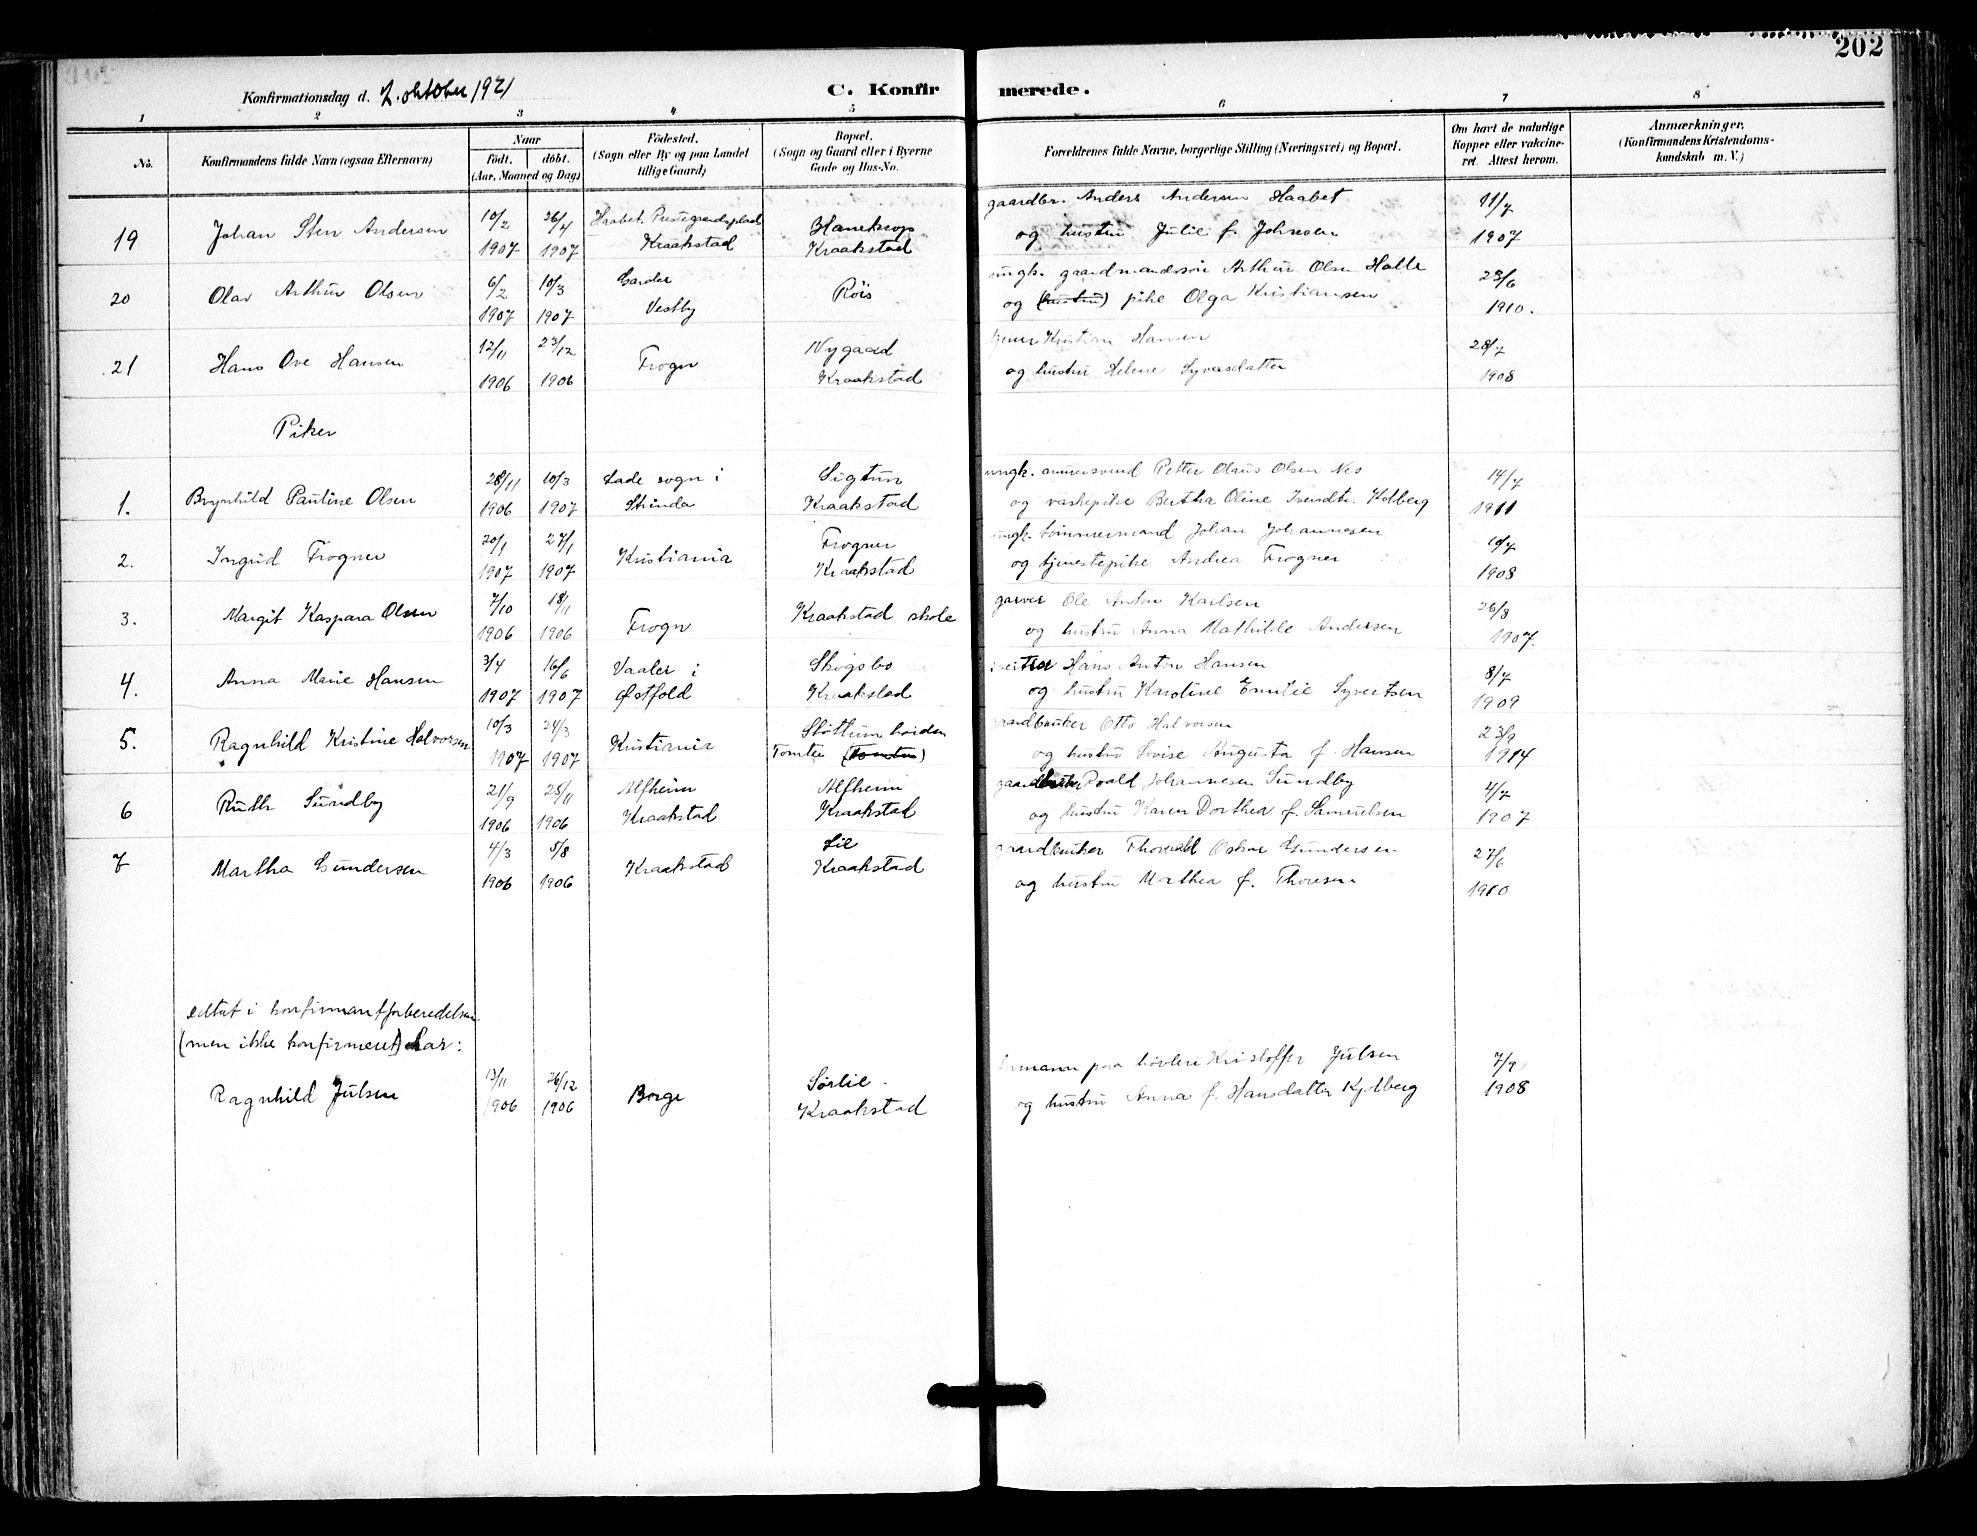 202
Konfirmationsdag d. 2. oktober 1921
C. Konfirmerede.
1 2 3 4 5 6 7 8
No.
Konfirmandens fulde Navn (ogsaa Efternavn)
Naar
födt. döbt.
(Aar, Maaned og Dag)
Födested.
(Sogn eller By og paa Landet
tillige Gaard)
Bopæl.
(Sogn og Gaard eller i Byerne
Gade og Hus-No.
Forældrenes fulde Navne, borgerlige Stilling (Næringsvei) og Bopæl.
Om havt de naturlige
Kopper eller vakcine-
ret. Attest herom.
Anmærkninger,
(Konfirmandens Kristendoms-
kundskab m. V.)
19 Johan Sten Andersen 10/2 26/4 Haabet. Kraakstad
1907 1907 Kraakstad
gaardbr. Anders Andersen Haabet 11/7
og hustru Julie f. Johnsen 1907
20 Olav Arthur Olsen 6/2 10/3 Garder Röis
1907 1907 Vestby
ungk. gaardmandssön Arthur Olsen Holle 23/6
og (hustru) pike Olga Kristiansen 1910.
21 Hans Ove Hansen 12/11 23/12 Frogn Nygaard
1906 1906 Kraakstad
Kristian Hansen 28/7
og hustru Helene Syversdatter 1908
Piker
1. Brynhild Pauline Olsen 28/11 10/3 Lade sogn i Sigtun
1906 1907 Strinda Kraakstad
ungk. Petter Olaus Olsen Nes 14/7
og vaskepike Bertha Oline Iversdtr. Kolberg 1911
2. Ingrid Frogner 20/1 27/1 Kristiania Frogner
1907 1907 Kraakstad
ungk. tömmermand Johan Johannesen 10/7
og tjenestepike Andrea Frogner 1908
3. Margit Kaspara Olsen 7/10 18/11 Frogn Kraakstad skole
1906 1906
garver Ole Anton Karlsen 26/8
og hustru Anna Mathilde Andersen 1907.
4. Anna Marie Hansen 3/4 16/6 Vaaler i Skogsbo
1907 1907 Østfold Kraakstad
Hans Anton Hansen 8/7
og hustru Karoline Emilie Syvertsen 1909
5. Ragnhild Kristine Halvorsen 10/3 24/3 Kristiania
1907 1907 Tomter (Tomter)
gaardbruker Otto Halvorsen 23/9
og hustru Lovise Augusta f. Hansen 1914
6 Ruth Sundby 21/9 25/11 Alfheim Alfheim
1906 1906 Kraakstad Kraakstad
gaardbruker Roald Johannesen Sundby 4/7
og hustru Karen Dorthea f. Samuelsen 1907
7 Martha Gundersen 4/3 5/8 Kraakstad Lie
1906 1906 Kraakstad
gaardbruker Thorvald Oskar Gundersen 27/6
og hustru Mathea f. Thoresen 1910
deltat i konfirmantforberedelsen
(men ikke konfirmeret) har:
Ragnhild Julsen 13/11 26/12 Borge Sørlie.
1906 1906 Kraakstad
paa høvleri Kristoffer Julsen 7/9
og hustru Anna f. Hansdatter Kjelberg 1908